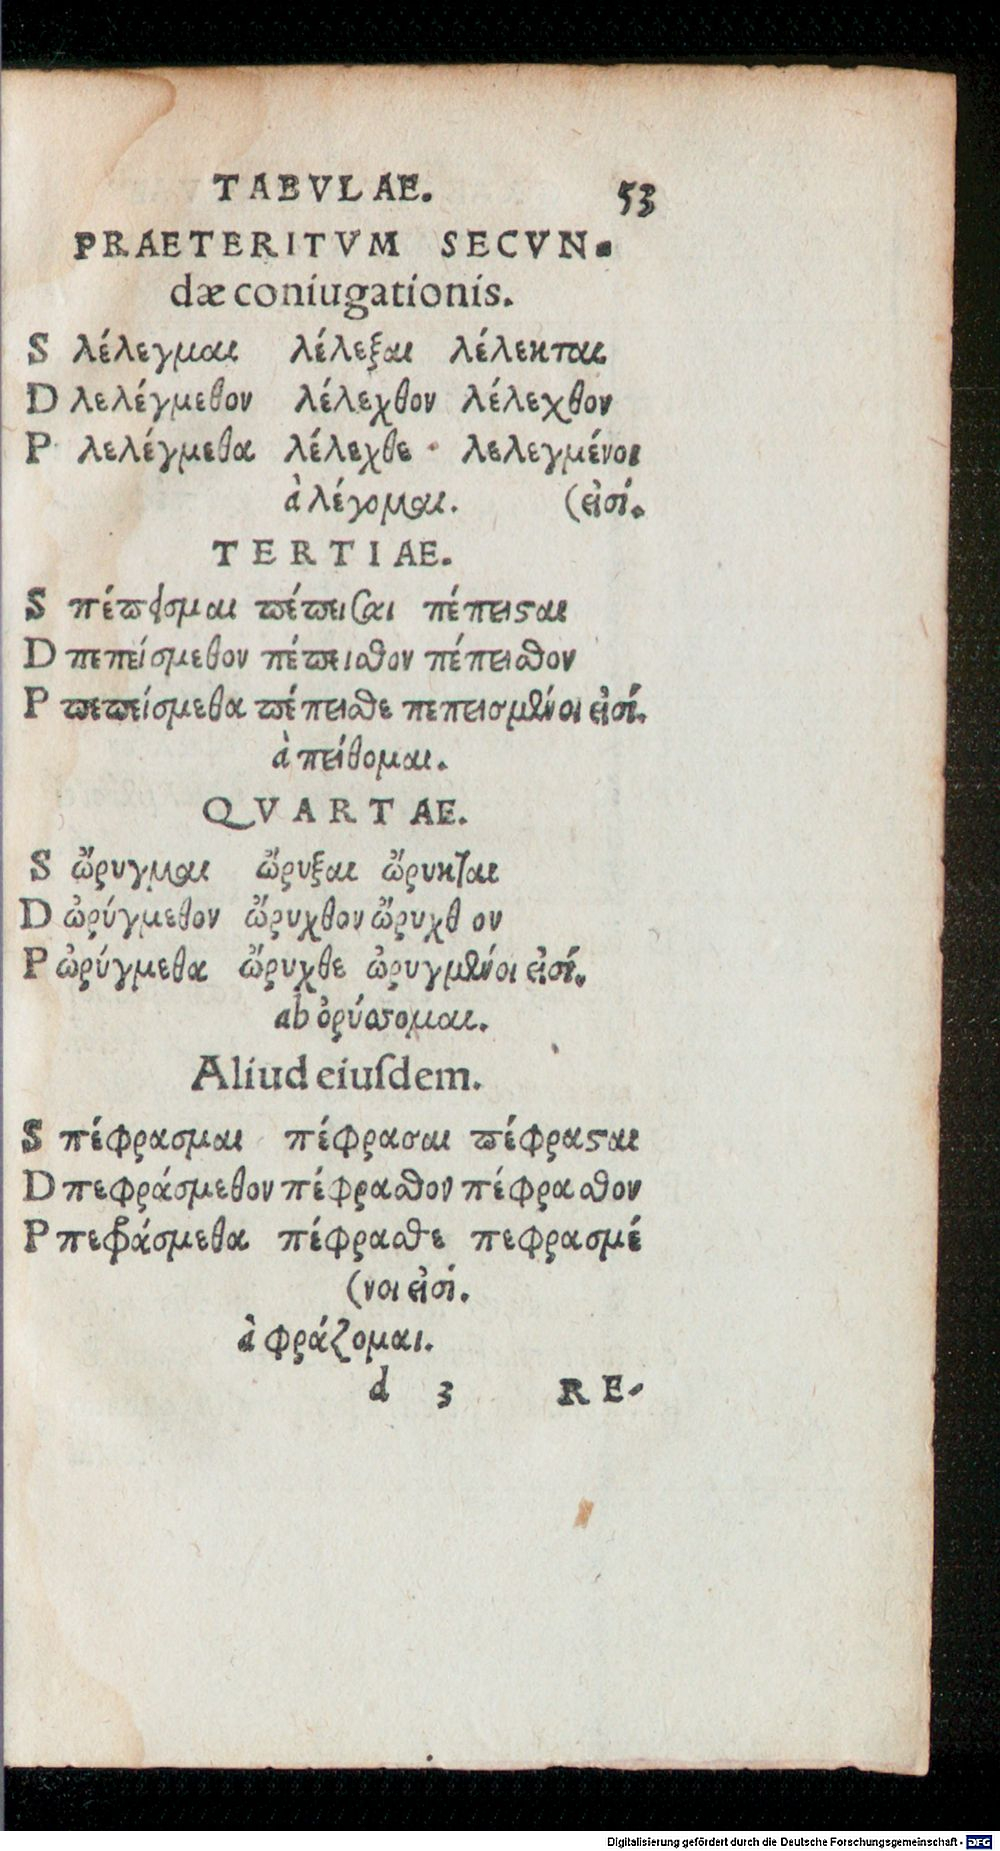 TABVLAE. 53
PRAETERITVM SECVN-
dæ coniugationis.
S λέλεγμαι λέλεξαι λέλεκται
D λελέγμεθον λέλεχθον λέλεχθον
P λελέγμεθα λέλεχθε λελεγμένοι
à λέγομαι. (εἰσί.
TERTIAE.
S πέπεισμαι πέπεισαι πέπειϛαι
D πεπείσμεθον πέπεισθον πέπεισθον
P πεπείσμεθα πέπεισθε πεπεισμένοι εἰσί.
à πείθομαι.
QVARTAE.
S ὤρυγμαι ὤρυξαι ὤρυκται
D ὠρύγμεθον ὤρυχθον ὤρυχθ ον
P ὠρύγμεθα ὤρυχθε ὠρυγμένοι εἰσί.
ab ὀρύσσομαι.
Aliud eiuſdem.
S πέφρασμαι πέφρασαι πέφραϛαι
D πεφράσμεθον πέφρασθον πέφρασθον
P πεφράσμεθα πέφρασθε πεφρασμέ
(νοι εἰσί.
à φράζομαι.
d 3 RE-
Digitalisierung gefördert durch die Deutsche Forschungsgemeinschaft - DFG